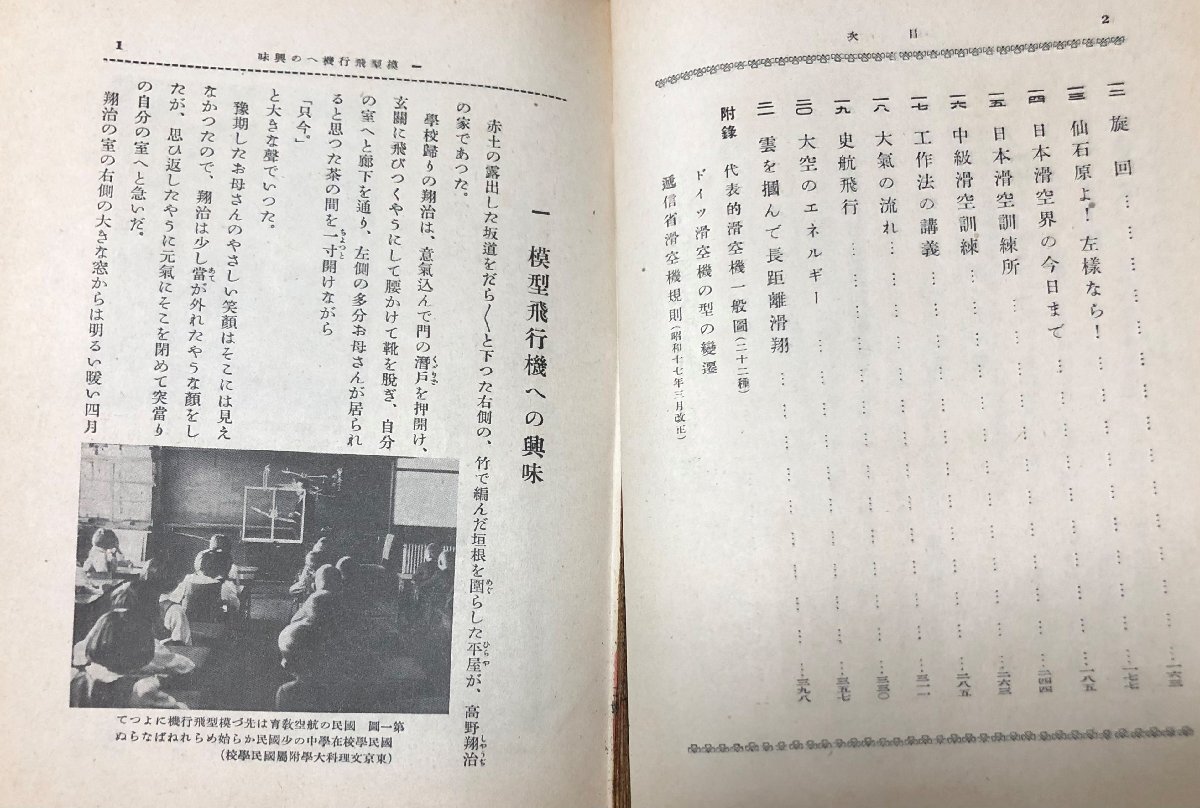 2
目次
一二 旋回…………一六三
一三 仙石原よ！左様なら！…………一七七
一四 日本滑空界の今日まで…………一八五
一五 日本滑空訓練所…………二四四
一六 中級滑空訓練…………二六三
一七 工作法の講義…………二八五
一八 大氣の流れ…………三一一
一九 史航飛行…………三三〇
二〇 大空のエネルギー…………三五七
二一 雲を摑んで長距離滑翔…………三九八
附錄 代表的滑空機一般圖(二十二種)
ドイツ滑空機の型の變遷
遞信省滑空機規則(昭和十七年三月改正)
1
一 模型飛行機への興味
一 模型飛行機への興味
赤土の露出した坂道をだら〱と下つた右側の、竹で編んだ垣根を圍らした平屋が、高野翔治
の家であつた。
學校歸りの翔治は、意氣込んで門の潛戸を押開け、
玄關に飛びつくやうにして腰かけて靴を脫ぎ、自分
の室へと廊下を通り、左側の多分お母さんが居られ
ると思つた茶の間を一寸開けながら
「只今。」
と大きな聲でいつた。
豫期したお母さんのやさしい笑顏はそこには見え
なかつたので、翔治は少し當が外れたやうな顏をし
たが、思ひ返したやうに元氣にそこを閉めて突當り
の自分の室へと急いだ。
翔治の室の右側の大きな窓からは明るい暖い四月
第一圖 國民の航空敎育は先づ模型飛行機によつて
國民學校在學中の少國民から始められねばならぬ
(東京文理科大學附屬國民學校)